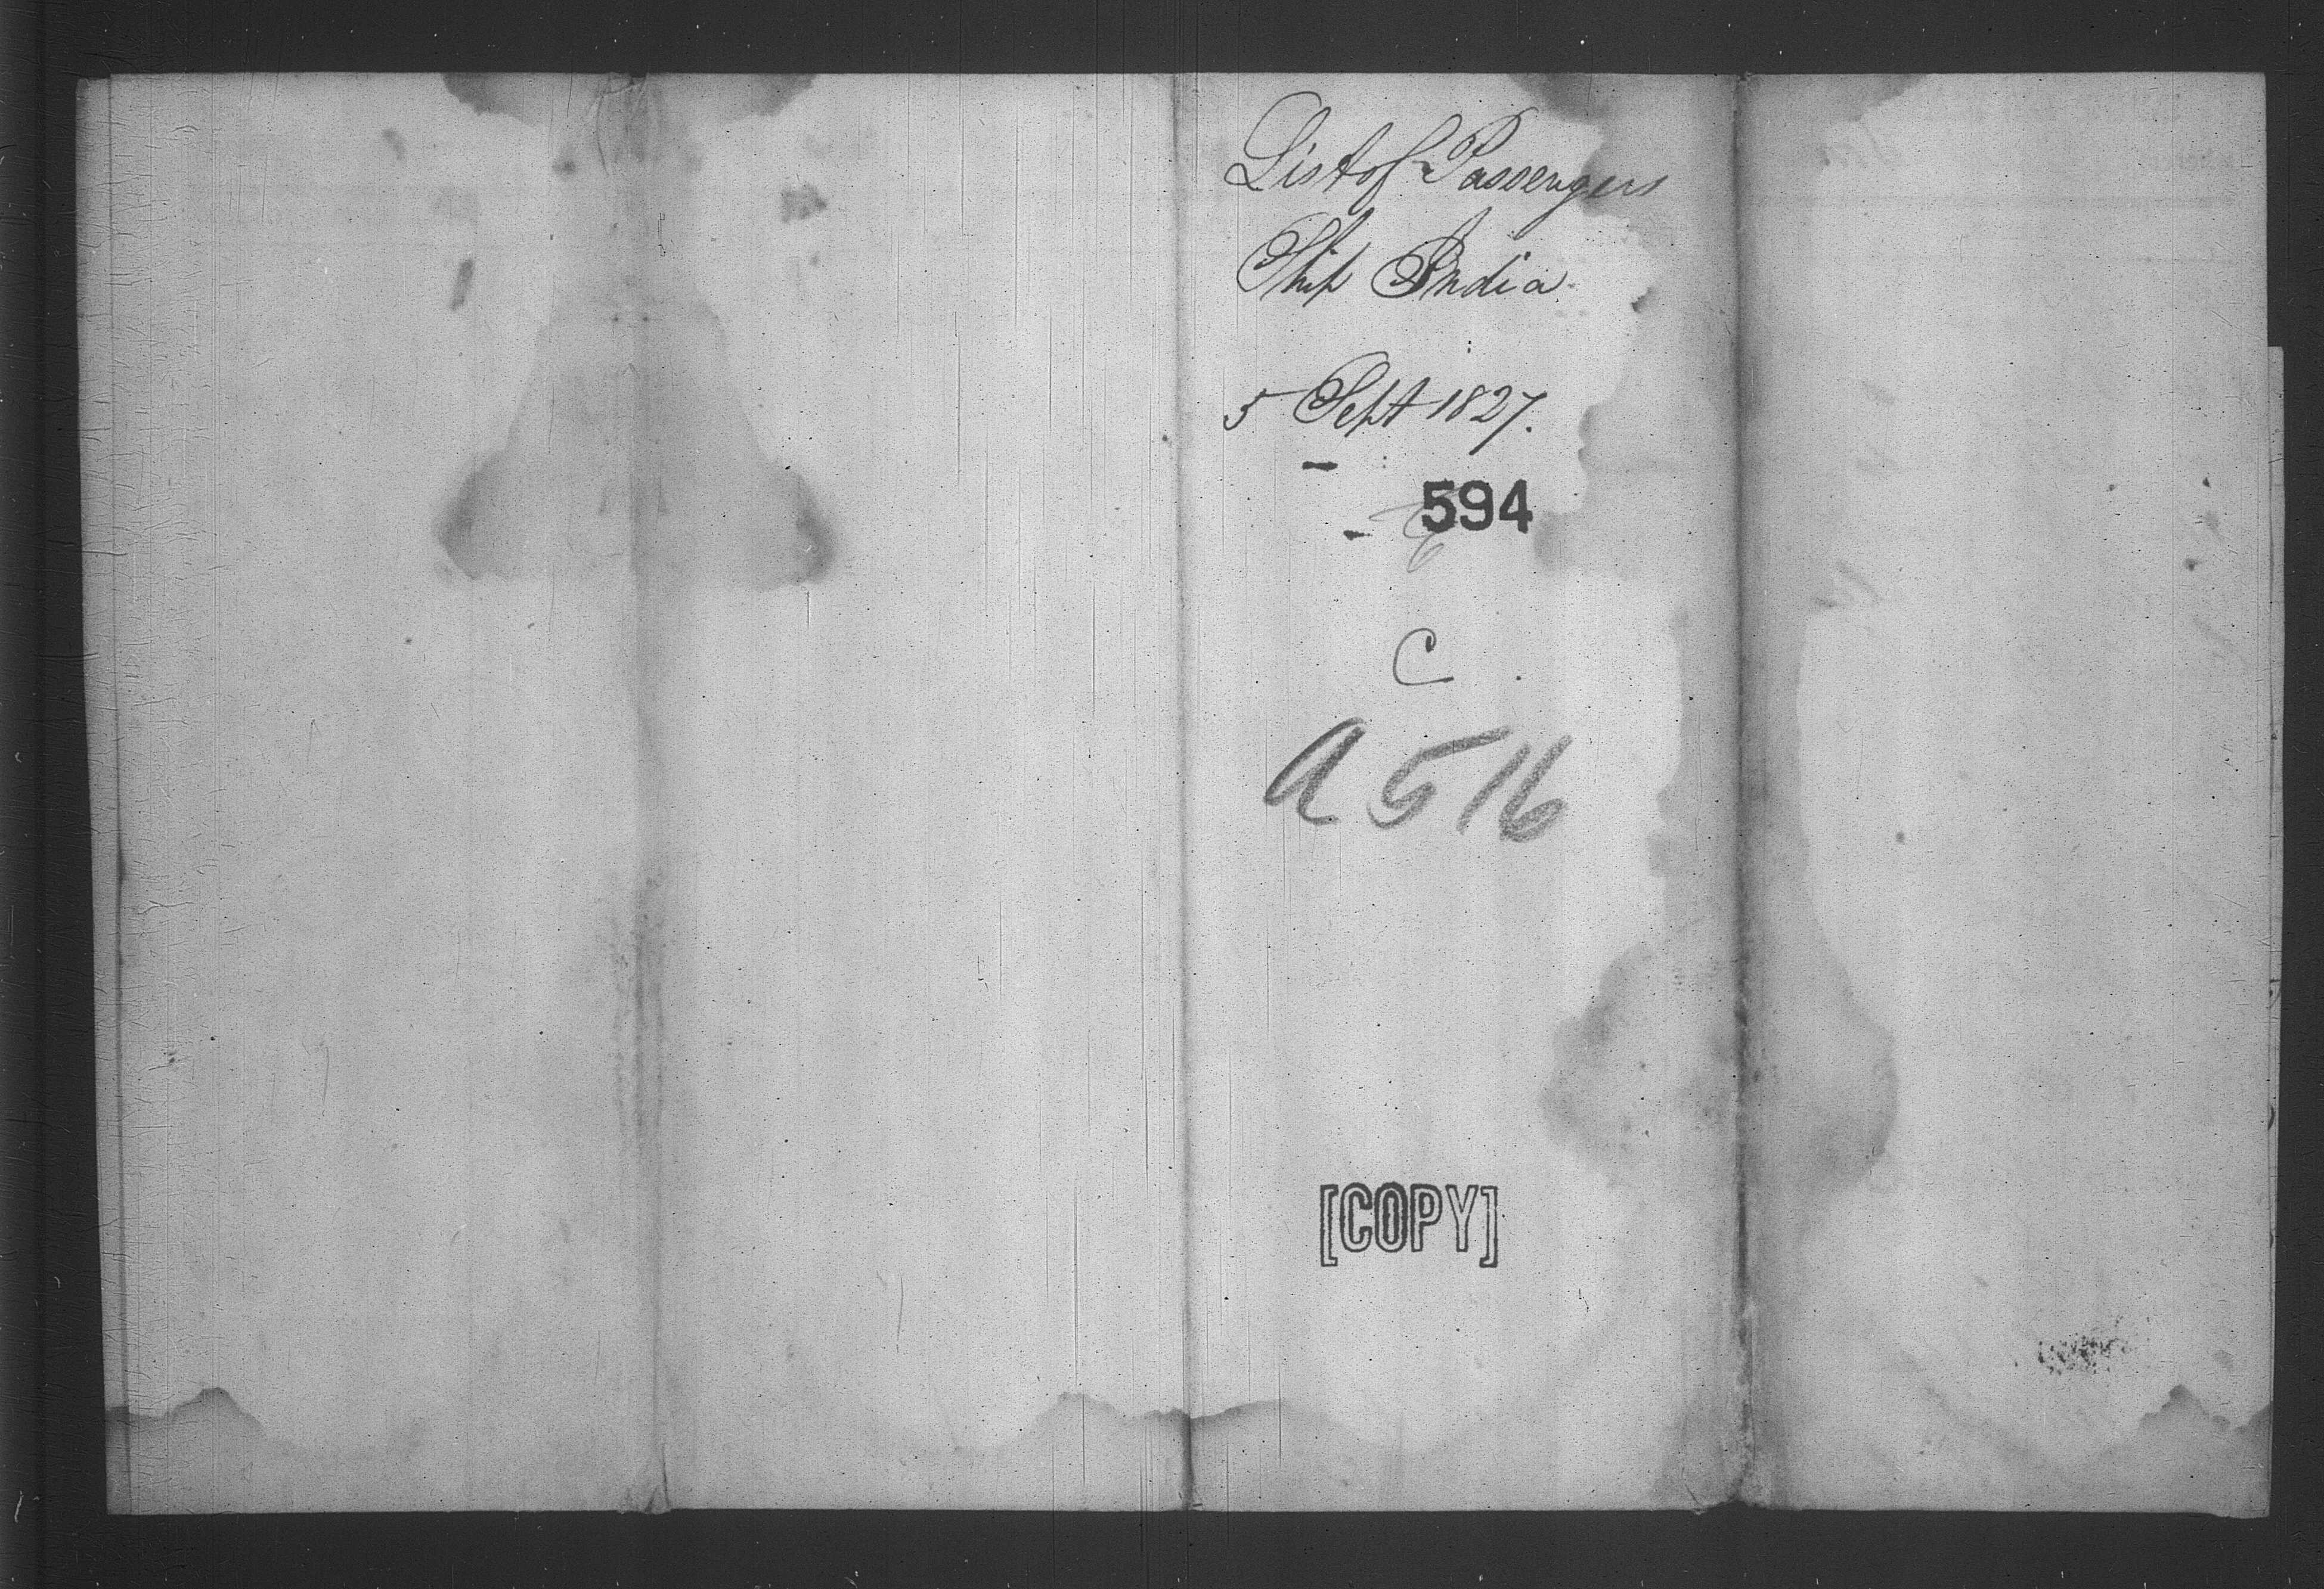 List of Passengers
Ship India
5 Sept 1827.
594
C
A 516
[COPY]